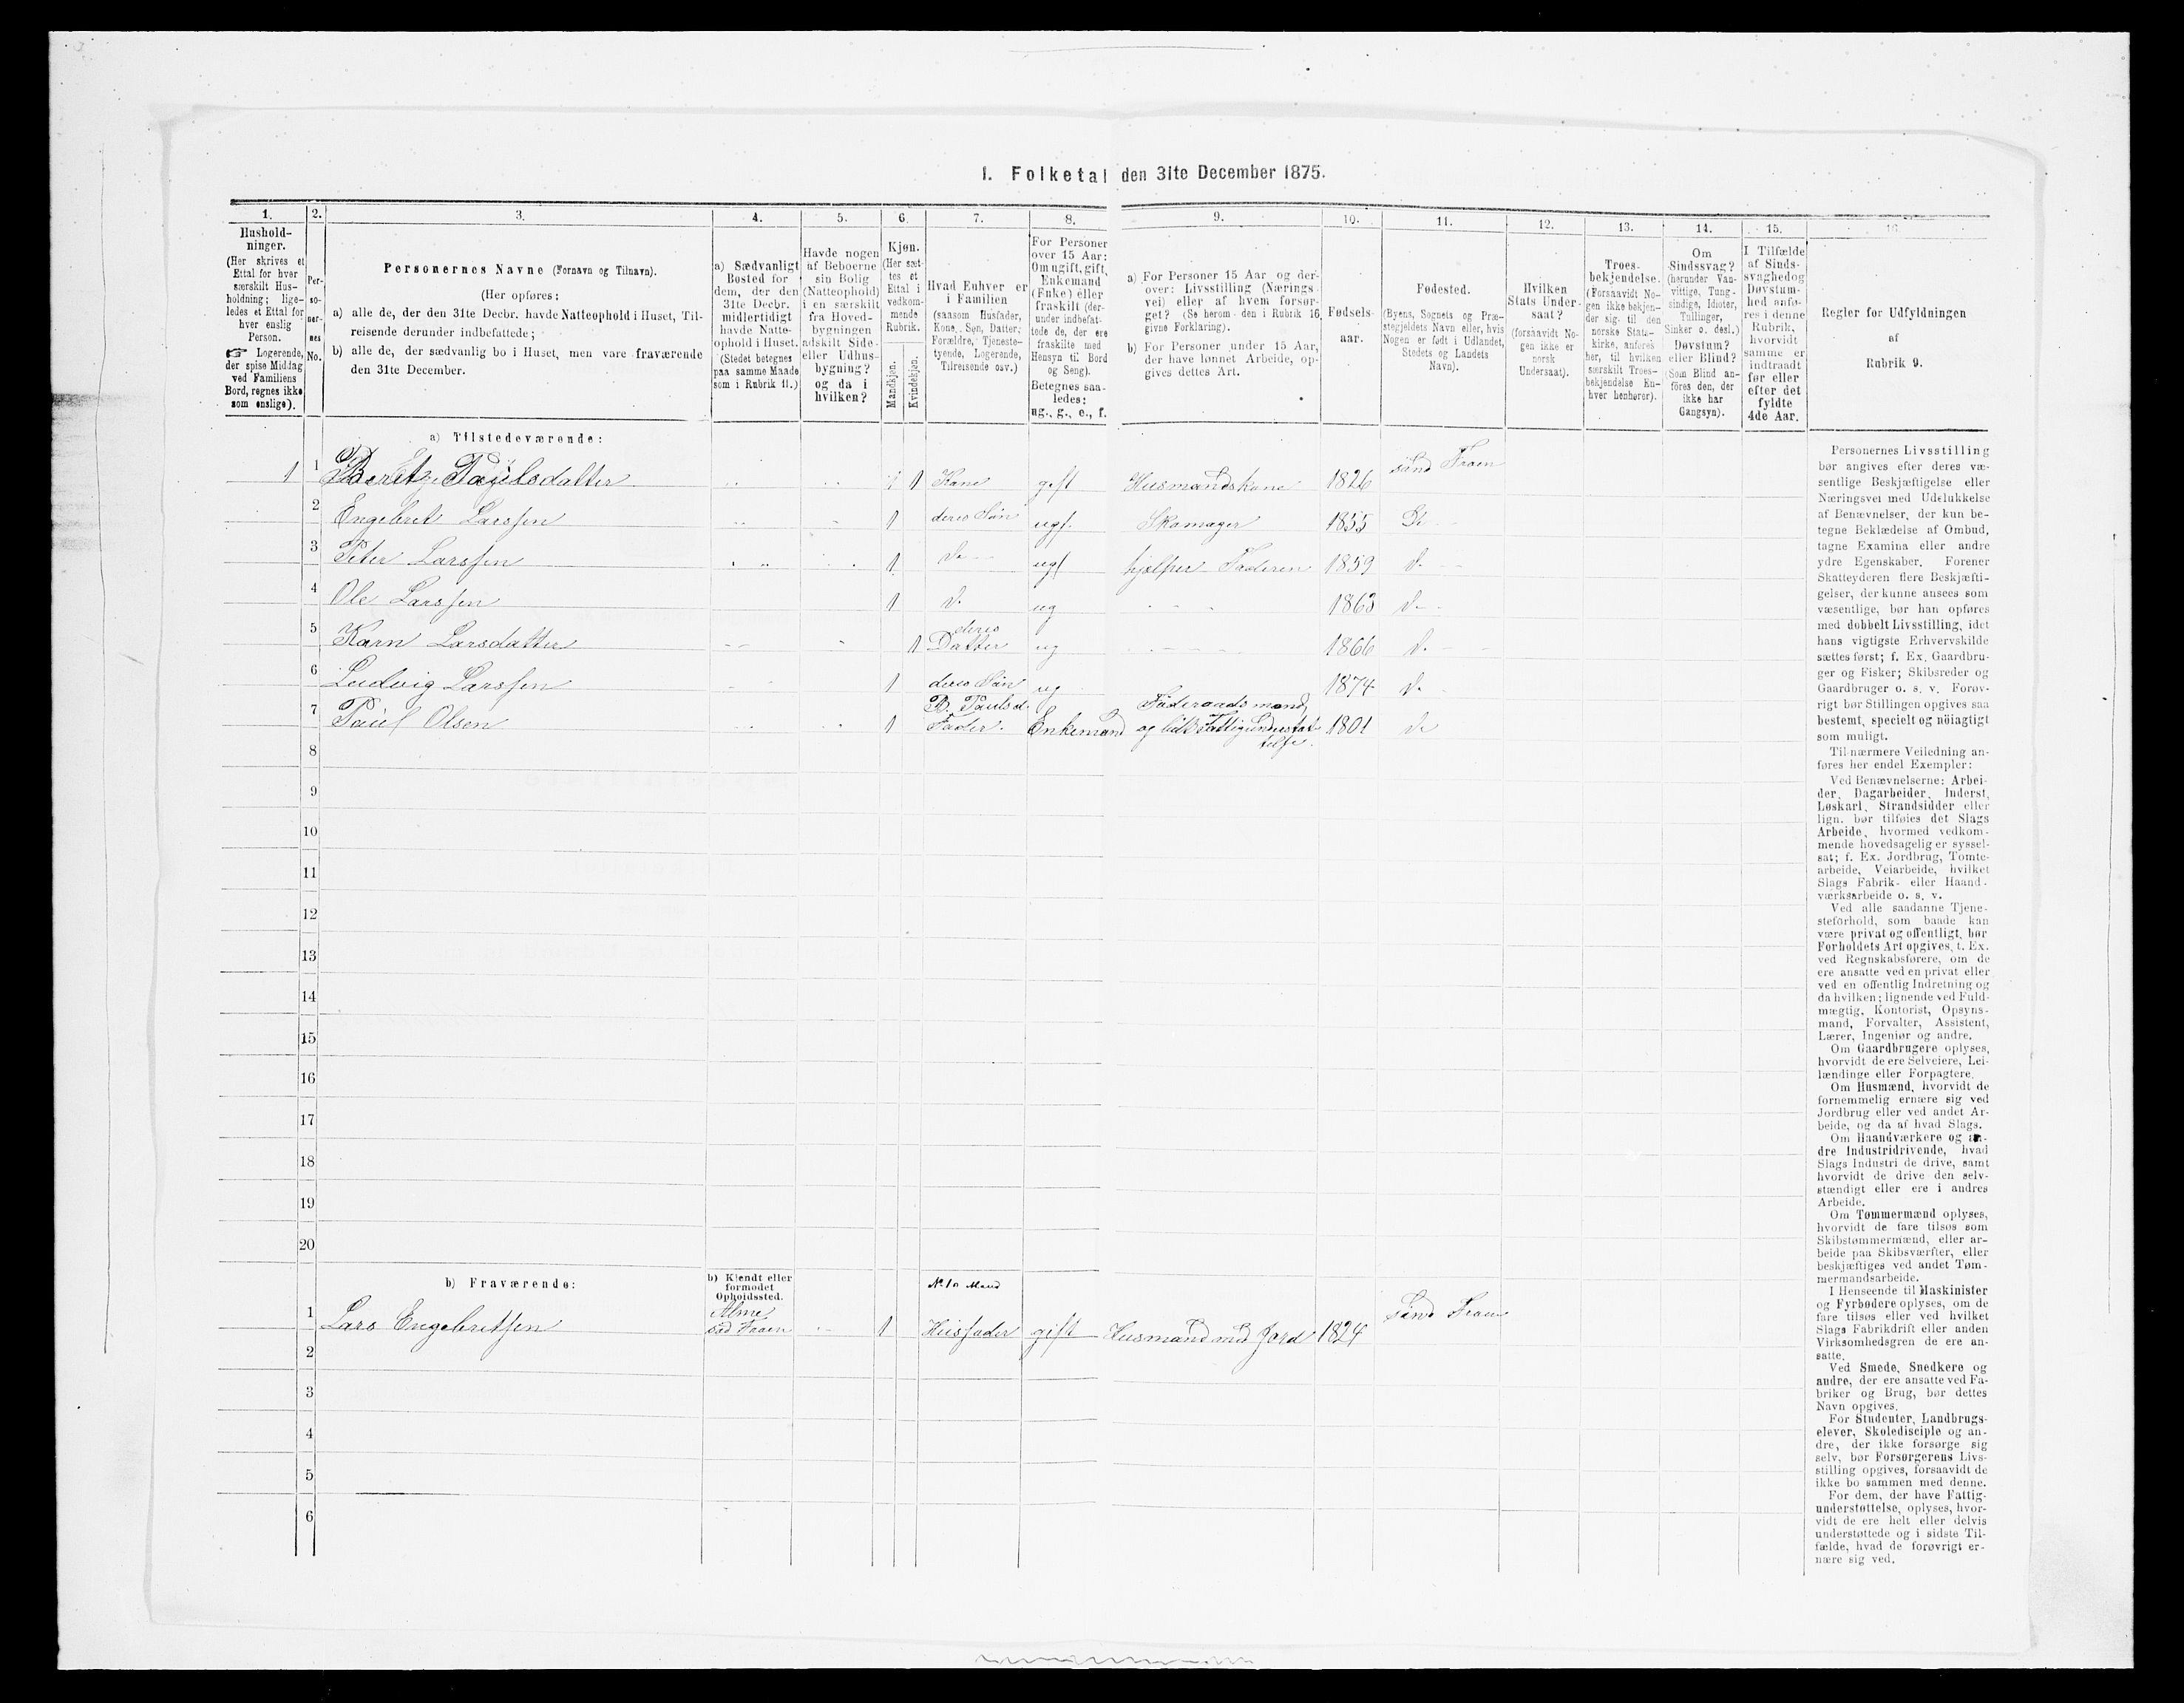 I. Folketal den 31te December 1875.
1. 2. 3. 4. 5. 6. 7. 8. 9. 10. 11. 12. 13. 14. 15. 16.
Hushold-
ninger.
(Her skrives et
Ettal for hver
særskilt Hus-
holdning; lige-
ledes et Ettal for
hver enslig
Person.
☞ Logerende,
der spise Middag
ved Familiens
Bord, regnes ikke
som enslige).
Per-
so-
ner-
nes
No.
Personernes Navne (Fornavn og Tilnavn).
(Her opføres:
a) alle de, der den 31te Decbr. havde Natteophold i Huset, Til-
reisende derunder indbefattede;
b) alle de, der sædvanlig bo i Huset, men vare fraværende
den 31te December.
a) Sædvanligt
Bosted for
dem, der den
31te Decbr.
midlertidigt
havde Natte-
ophold i Huset.
(Stedet betegnes
paa samme Maade
som i Rubrik 11.)
Havde nogen
af Beboerne
sin Bolig
(Natteophold)
i en særskilt
fra Hoved-
bygningen
adskilt Side-
eller Udhus-
bygning?
og da i
hvilken?
Kjøn.
(Her sæt-
tes et
Ettal i
vedkom-
mende
Rubrik.
Mandkjøn.
Kvindekjøn.
Hvad Enhver er
i Familien
(saasom Husfader,
Kone, Søn, Datter,
Forældre, Tjeneste-
tyende, Logerende,
Tilreisende osv.)
For Personer
over 15 Aar:
Om ugift, gift,
Enkemand
(Enke) eller
fraskilt (der-
under indbefat-
tede de, der ere
fraskilte med
Hensyn til Bord
og Seng).
Betegnes saa-
ledes:
ug., g., e., f.
a) For Personer 15 Aar og der-
over: Livsstilling (Nærings-
vei) eller af hvem forsør-
get? (Se herom den i Rubrik 16
givne Forklaring).
b) For Personer under 15 Aar,
der have lønnet Arbeide, op-
gives dettes Art.
Fødsels-
aar.
Fødested.
(Byens, Sognets og Præ-
stegjeldets Navn eller, hvis
Nogen er født i Udlandet,
Stedets og Landets
Navn).
Hvilken
Stats Under-
saat?
(forsaavidt No-
gen ikke er
norsk
Undersaat).
Troes-
bekjendelse.
(Forsaavidt No-
gen ikke bekjen-
der sig til den
norske Stats-
kirke, anføres
her, til hvilken
særskilt Troes-
bekjendelse En-
hver henhører).
Om
Sindssvag?
(herunder Van-
vittige, Tung-
sindige, Idioter,
Tullinger,
Sinker o. desl.)
Døvstum?
eller Blind?
(Som Blind an-
føres den, der
ikke har
Gangsyn).
I Tilfælde
af Sinds-
svaghed og
Døvstum-
hed anfø-
res i denne
Rubrik,
hvorvidt
samme er
indtraadt
før eller
efter det
fyldte
4de Aar.
Regler for Udfyldningen
af
Rubrik 9.
a) Tilstedeværende:
1 1 Berit Paulsdatter 1 Kone gift Husmandskone 1826
2 Engebret Larssen 1 deres Søn ugf. Skomager 1855 Do
3 Peter Larssen 1 do ugf hjelper Faderen 1859 do
4 Ole Larssen 1 do ug 1863 do
5 Karn Larsdatter 1 deres Datter ug 1866 do
6 Ludvig Larssen 1 deres Søn ug 1874 do
7 Paul Olsen 1 B. Paulsd. Fader. Enkemand Føderaadsmand, 1801 do
8
9
10
11
12
13
14
15
16
17
18
19
20
b) Fraværende:
b) Kjendt eller
formodet
Opholdssted.
No 1s Mand
1 Lars Engebretsen 1 Husfader gift Husmand med Jord 1824
2
3
4
5
6
Personernes Livsstilling
bør angives efter deres væ-
sentlige Beskjæftigelse eller
Næringsvei med Udelukkelse
af Benævnelser, der kun be-
tegne Beklædelse af Ombud,
tagne Examina eller andre
ydre Egenskaber. Forener
Skatteyderen flere Beskjæfti-
gelser, der kunne ansees som
væsentlige, bør han opføres
med dobbelt Livsstilling, idet
hans vigtigste Erhvervskilde
sættes først; f. Ex. Gaardbru-
ger og Fisker; Skibsreder og
Gaardbruger o. s. v. Forøv-
rigt bør Stillingen opgives saa
bestemt, specielt og nöiagtigt
som muligt.
Til nærmere Veiledning an-
føres her endel Exempler:
Ved Benævnelserne: Arbei-
der, Dagarbeider, Inderst,
Løskarl, Strandsidder eller
lign. bør tilføies det Slags
Arbeide, hvormed vedkom-
mende hovedsagelig er syssel-
sat; f. Ex. Jordbrug, Tomte-
arbeide, Veiarbeide, hvilket
Slags Fabrik- eller Haand-
værksarbeide o. s. v.
Ved alle saadanne Tjene-
steforhold, som baade kan
være privat og offentligt, bør
Forholdets Art opgives, t. Ex.
ved Regnskabsførere, om de
ere ansatte ved en privat eller
ved en offentlig Indretning og
da hvilken; lignende ved Fuld-
mægtig, Kontorist, Opsyns-
mand, Forvalter, Assistent,
Lærer, Ingeniør og andre.
Om Gaardbrugere oplyses,
hvorvidt de ere Selveiere, Lei-
lændinge eller Forpagtere.
Om Husmænd, hvorvidt de
fornemmelig ernære sig ved
Jordbrug eller ved andet Ar-
beide, og da af hvad Slags.
Om Haandværkere og an-
dre Industridrivende, hvad
Slags Industri de drive, samt
hvorvidt de drive den selv-
stændigt eller ere i andres
Arbeide.
Om Tømmermænd oplyses,
hvorvidt de fare tilsøs som
Skibstømmermænd, eller ar-
beide paa Skibsværfter, eller
beskjæftiges ved andet Tøm-
mermandsarbeide.
I Henseende til Maskinister
og Fyrbødere oplyses, om de
fare tilsøs eller ved hvilket
Slags Fabrikdrift eller anden
Virksomhedsgren de ere an-
satte.
Ved Smede, Snedkere og
andre, der ere ansatte ved Fa-
briker og Brug, bør dettes
Navn opgives.
For Studenter, Landbrugs-
elever, Skoledisciple og an-
dre, der ikke forsørge sig
selv, bør Forsørgerens Livs-
stilling opgives, forsaavidt de
ikke bo sammen med denne.
For dem, der have Fattig-
understøttelse, oplyses, hvor-
vidt de ere helt eller delvis
understøttede og i sidste Til-
fælde, hvad de forøvrigt er-
nære sig ved.